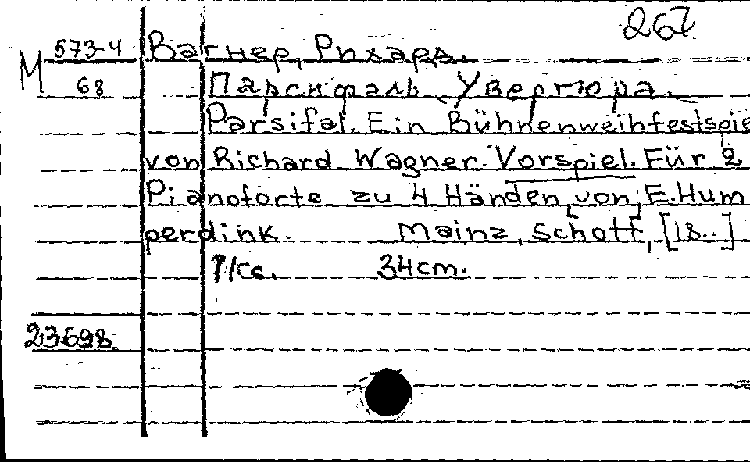 267
М 573-4 Вагнер, Рихард.
68 Парсифаль. Увертюра.
Parsifal. Ein Bühnenweihfestspie
von Richard Wagner. Vorspiel. Für 2
Pianoforte zu 4 Händen von E. Hum
perdink. Mainz, Schott, [18..]
34cm.
23698